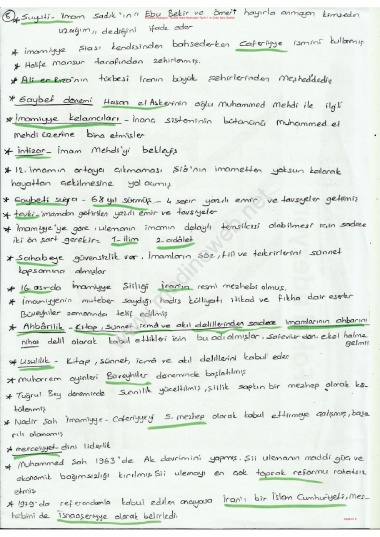 6
* Suyuti - İmam Sadık'ın " Ebu Bekir ve Ömeri hayırla anmayan kimseden
uzağım " dediğini ifade eder
* İmamiyye Şiası kendisinden bahsederken Caferiyye ismini kullanmış
* Halife mansur tarafından zehirlenmiş.
* Ali er-Rıza'nın türbesi İranın büyük şehirlerinden Meşhed'dedir
* Gaybet dönemi Hasan el Askerinin oğlu Muhammed Mehdi ile ilgili
* İmamiyye kelamcıları - inanç sisteminin bütününü Muhammed el
mehdi üzerine bina etmişler
* İntizar - imam Mehdi'yi bekleyiş
* 12. imamın ortaya çıkmaması Şia'nın imametten yoksun kalarak
hayattan çekilmesine yol açmış
* Gaybeti suğra - 68 yıl sürmüş - 4 sefir yazılı emir ve tavsiyeler getirmiş
* tevki - imamdan getirilen yazılı emir ve tavsiyeler
* İmamiyye'ye göre ; ulemanın imamın dolaylı temsilcisi olabilmesi için sadece
iki ön şart gerekir. 1-ilim 2-adâlet
* Sahabeye güvensizlik var. İmamların söz, fiil ve takrirlerini sünnet
kapsamına almışlar
* 16. asırda İmamiyye Şiiliği İranın resmi mezhebi olmuş.
* İmamiyyenin muteber saydığı hadis külliyatı itikad ve fıkha dair eserler
Büveyhiler zamanında telif edilmiş
* Ahbârilik - Kitap, sünnet, icmâ ve akıl delillerinden sadece imamların ahbarını
nihai delil olarak kabul ettikleri için bu adı almışlar. Safeviler dön. ekol haline
gelmiş
* Usulilik - Kitap, sünnet, icmâ ve akıl delillerini kabul eder
* muharrem ayinleri Büveyhiler döneminde başlatılmış
* Tuğrul Bey döneminde Sünnilik yüceltilmiş, şiilik sapkın bir mezhep olarak kö-
tülenmiş
* Nadir Şah İmamiyye - Caferiyyeyi 5. mezhep olarak kabul ettirmeye çalışmış, başa
rılı olamamış
* merceiyyet - dini liderlik
* Muhammed Şah 1963'de Ak devrimini yapmış. Şii ulemanın maddi güç ve
ekonomik bağımsızlığı kırılmış. Şii ulemayı en çok toprak reformu rahatsız
etmiş
* 1979'da referandumla kabul edilen anayasa İran'ı bir İslam Cumhuriyeti, mez-
hebini de İsnaaşeriyye olarak belirledi